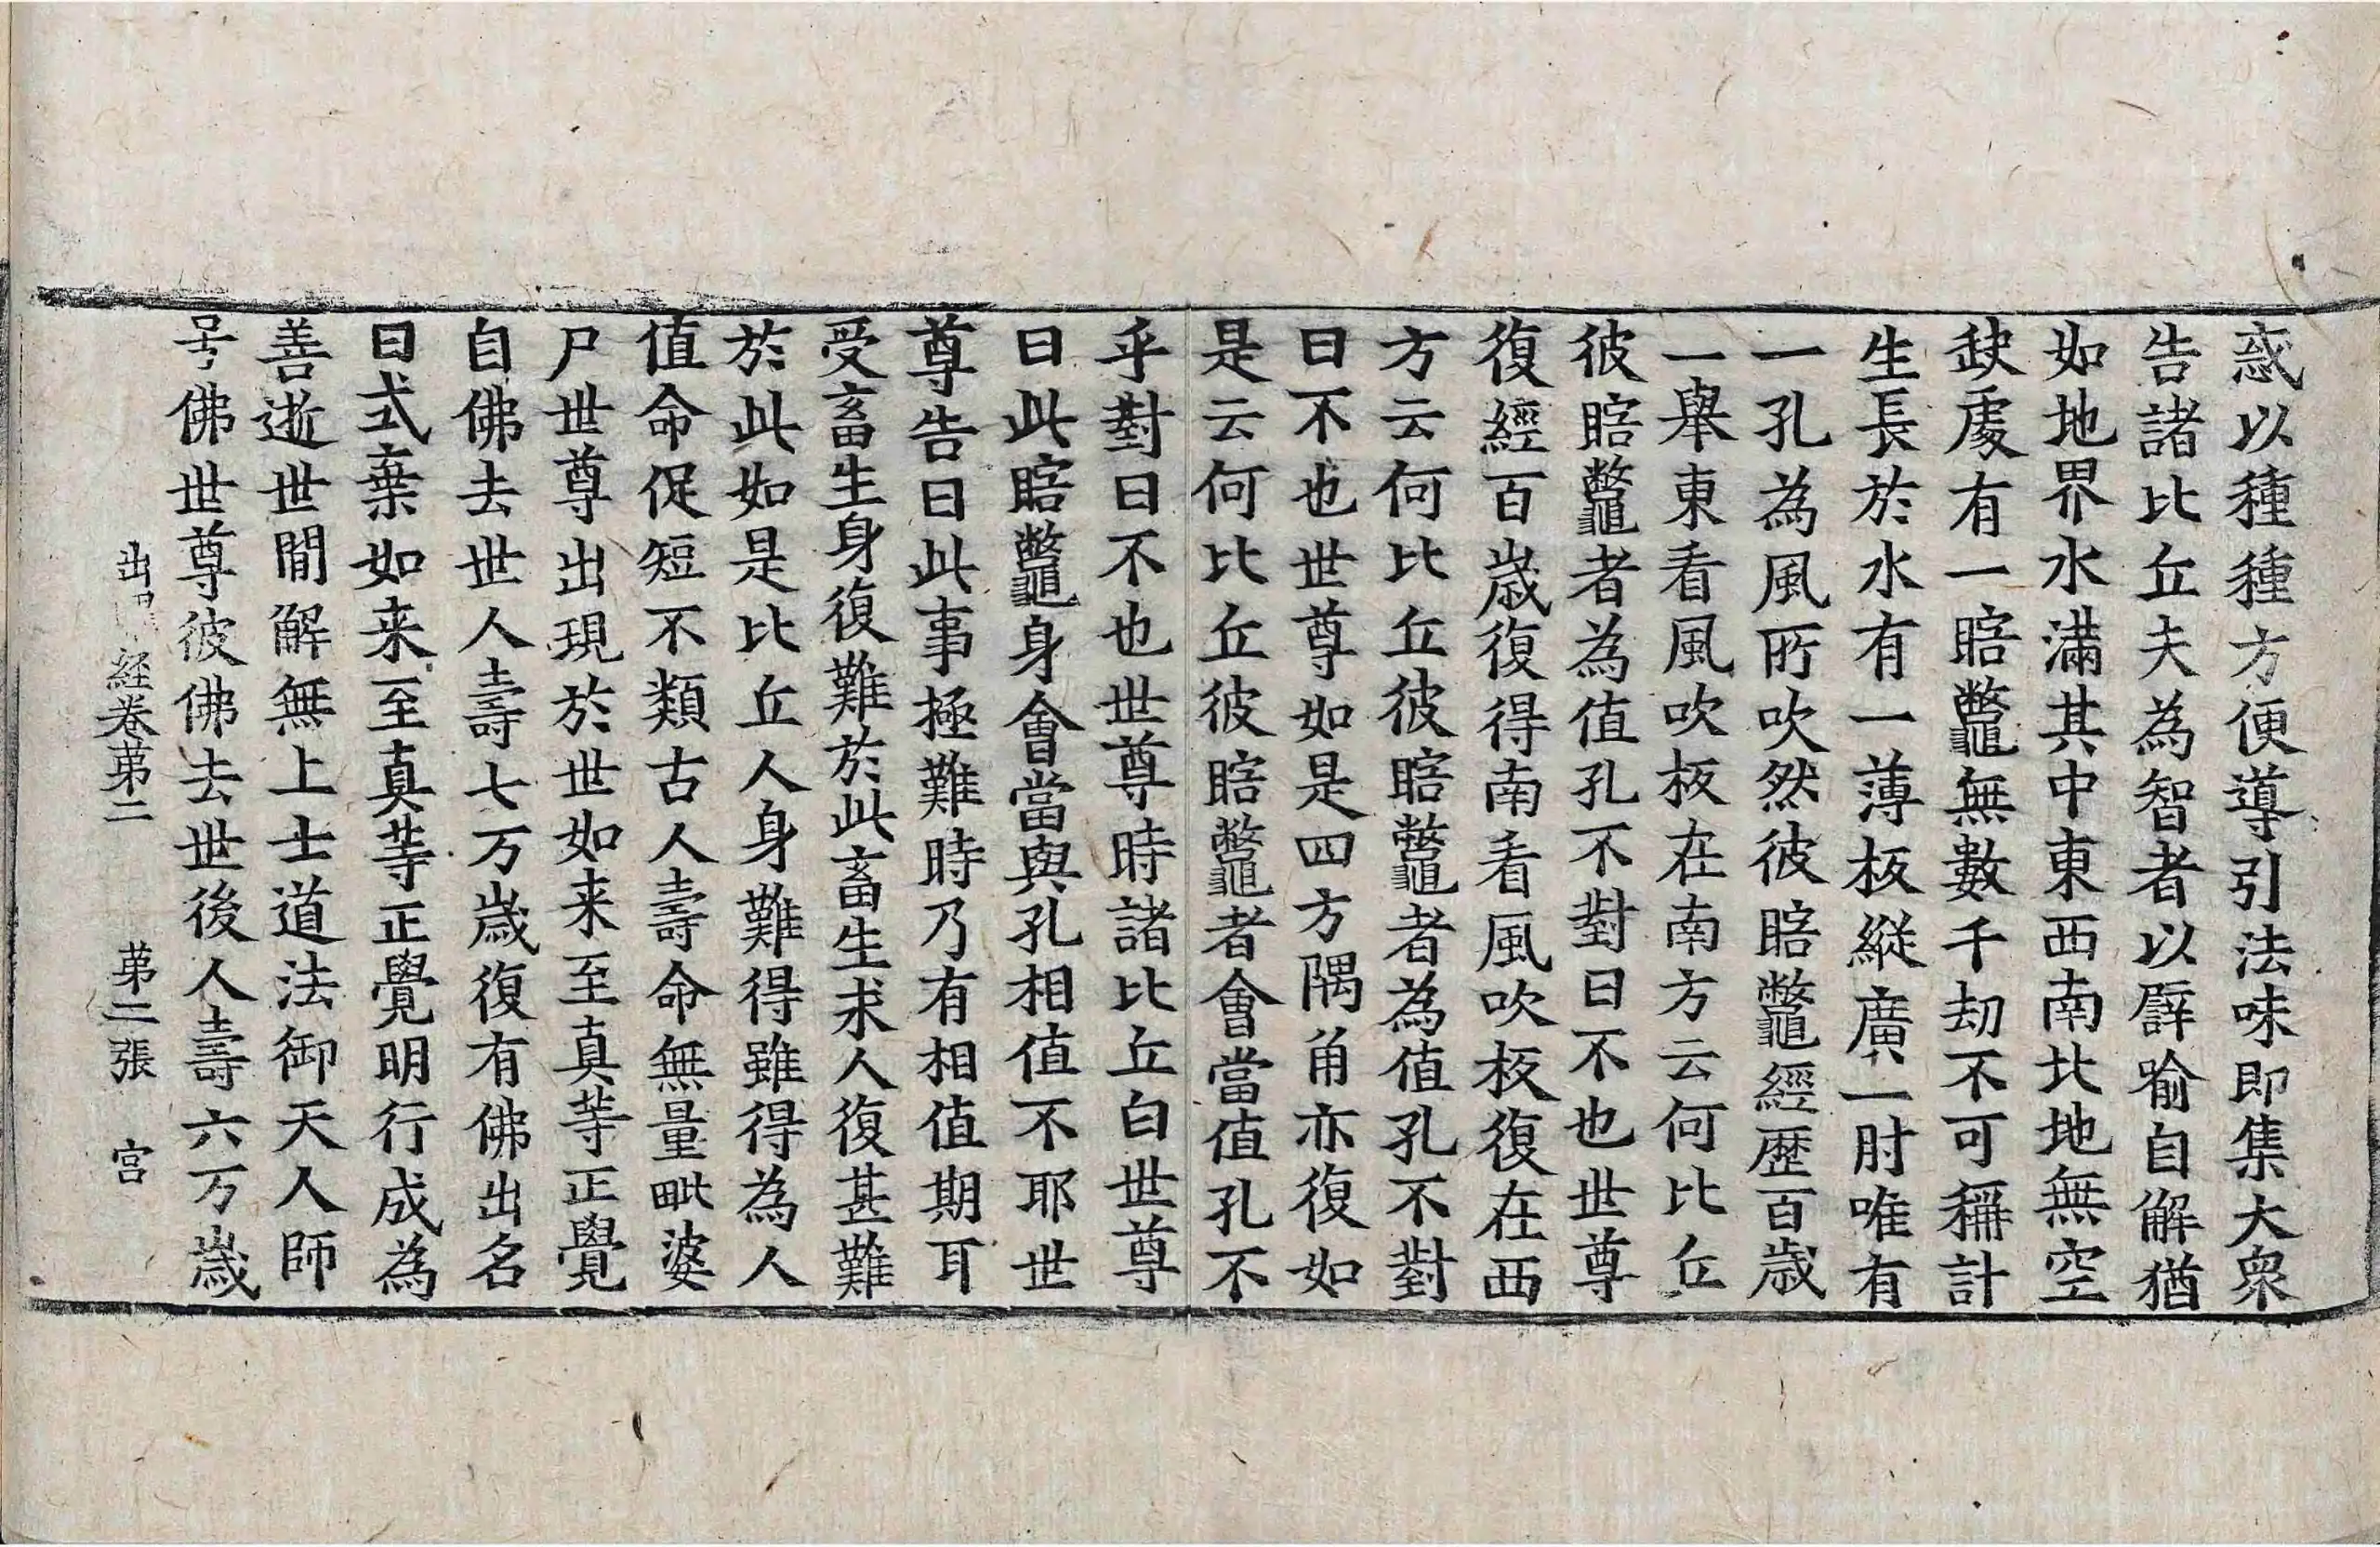 惑以種種方便導引法味即集大衆
告諸比丘夫為智者以譬喻自解猶
如地界水滿其中東西南北地無空
缺處有一䀯鼈無數千劫不可稱計
生長於水有一薄板縱廣一肘唯有
一孔為風所吹然彼䀯鼈經歷百歲
一舉東看風吹板在南方云何比丘
彼䀯鼈者為值孔不對曰不也世尊
復經百歲復得南看風吹板復在西
方云何比丘彼䀯鼈者為值孔不對
曰不也世尊如是四方隅角亦復如
是云何比丘彼䀯鼈者會當值孔不
乎對曰不也世尊時諸比丘白世尊
曰此䀯鼈身會當與孔相值不耶世
尊告曰此事極難時乃有相值期耳
受畜生身復難於此畜生求人復甚難
於此如是比丘人身難得雖得為人
值命促短不類古人壽命無量毗婆
尸世尊出現於世如来至真等正覺
自佛去世人壽七万歲復有佛出名
曰式棄如来至真等正覺明行成為
善逝世間解無上士道法御天人師
号佛世尊彼佛去世後人壽六万歲
出曜経卷苐二 苐二張 宫